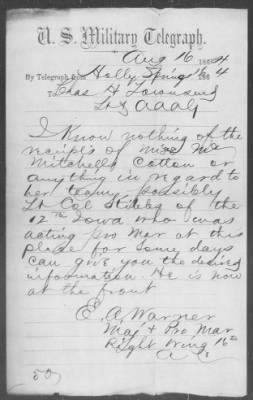 U. S. Military Telegraph.
Aug 16 1864
By Telegraph from Holly Spring 16 1864
To Chas H Townsend
Lt & AAAG
I know nothing of the
receipts of miss Mc
Mitchells Cotton or
anything in regard to
her team, possibly
Lt Col Stibbs of the
12th Iowa who was
acting Pro Mar at this
place for some days
can give you the desired
information. He is now
at the front
E. A. Warner
Maj & Pro Mar
Right Wing 16th
A
50